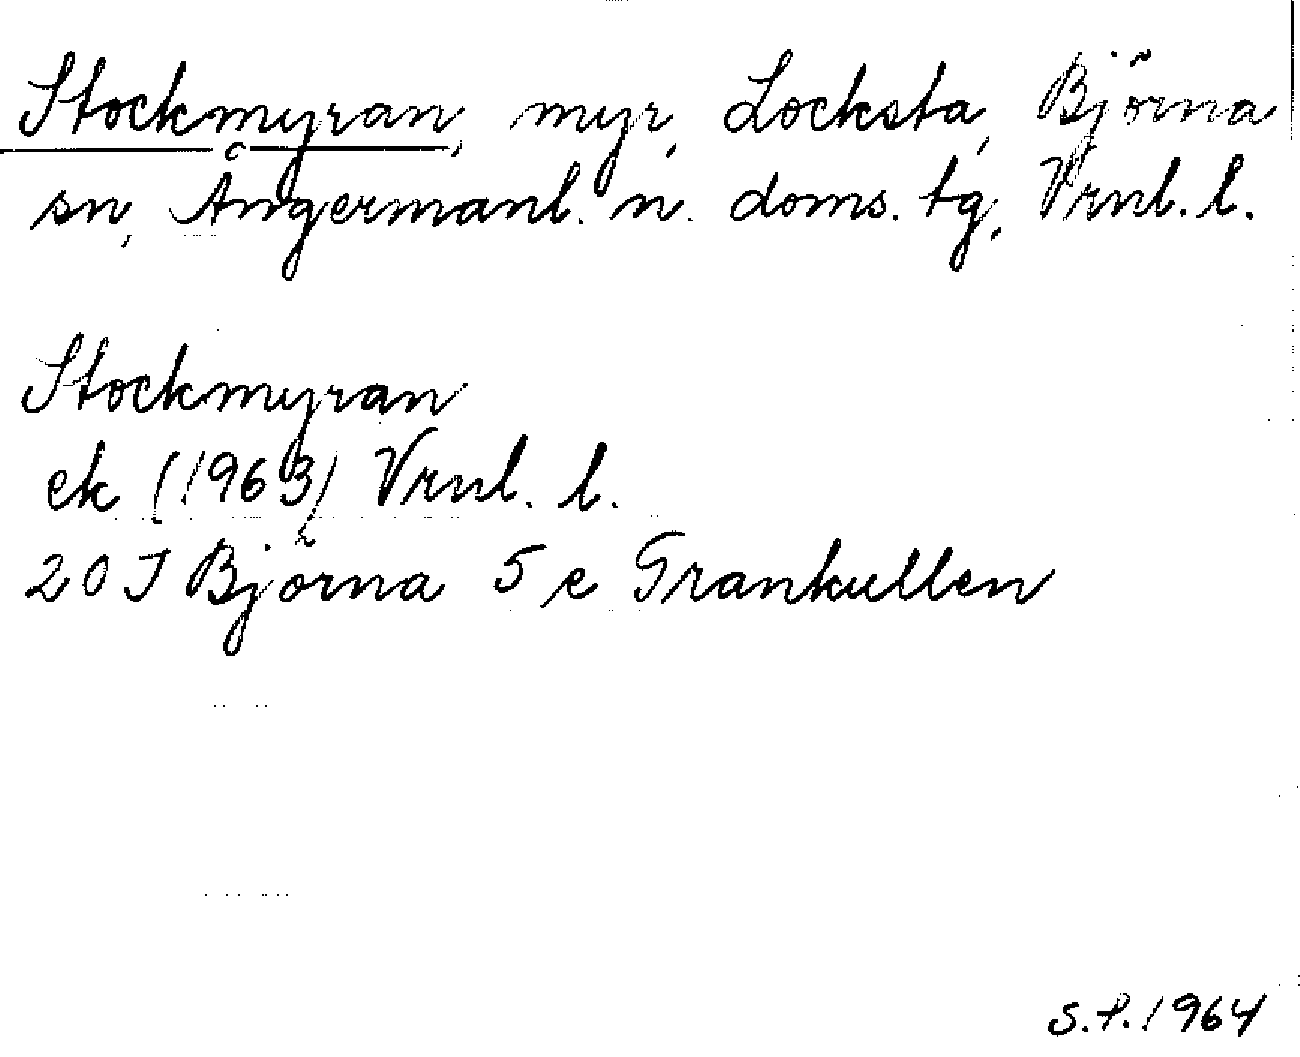 Stockmyran, myr, Locksta, Björna
sn, Ångermanl. n. doms. tg, Vrnl. l.
Stockmyran
ek (1963) Vrnl. l.
20 J Björna 5 e Grankullen
S.P. 1964